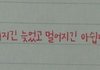 지긴 늦었고 멀어지긴 아쉽